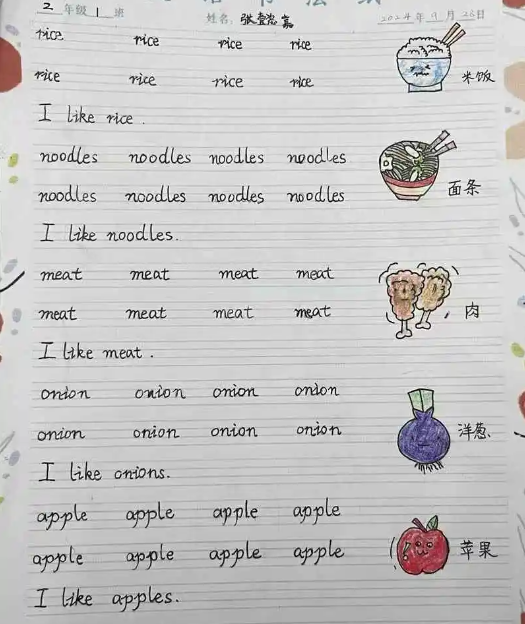 2 年级 1 班 姓名: 2024年9月26日
rice rice rice rice
rice rice rice rice
米饭
I like rice.
noodles noodles noodles noodles
noodles noodles noodles noodles
面条
I like noodles.
meat meat meat meat
meat meat meat meat
肉
I like meat.
onion onion onion onion
onion onion onion onion
洋葱
I like onions.
apple apple apple apple
apple apple apple apple
苹果
I like apples.